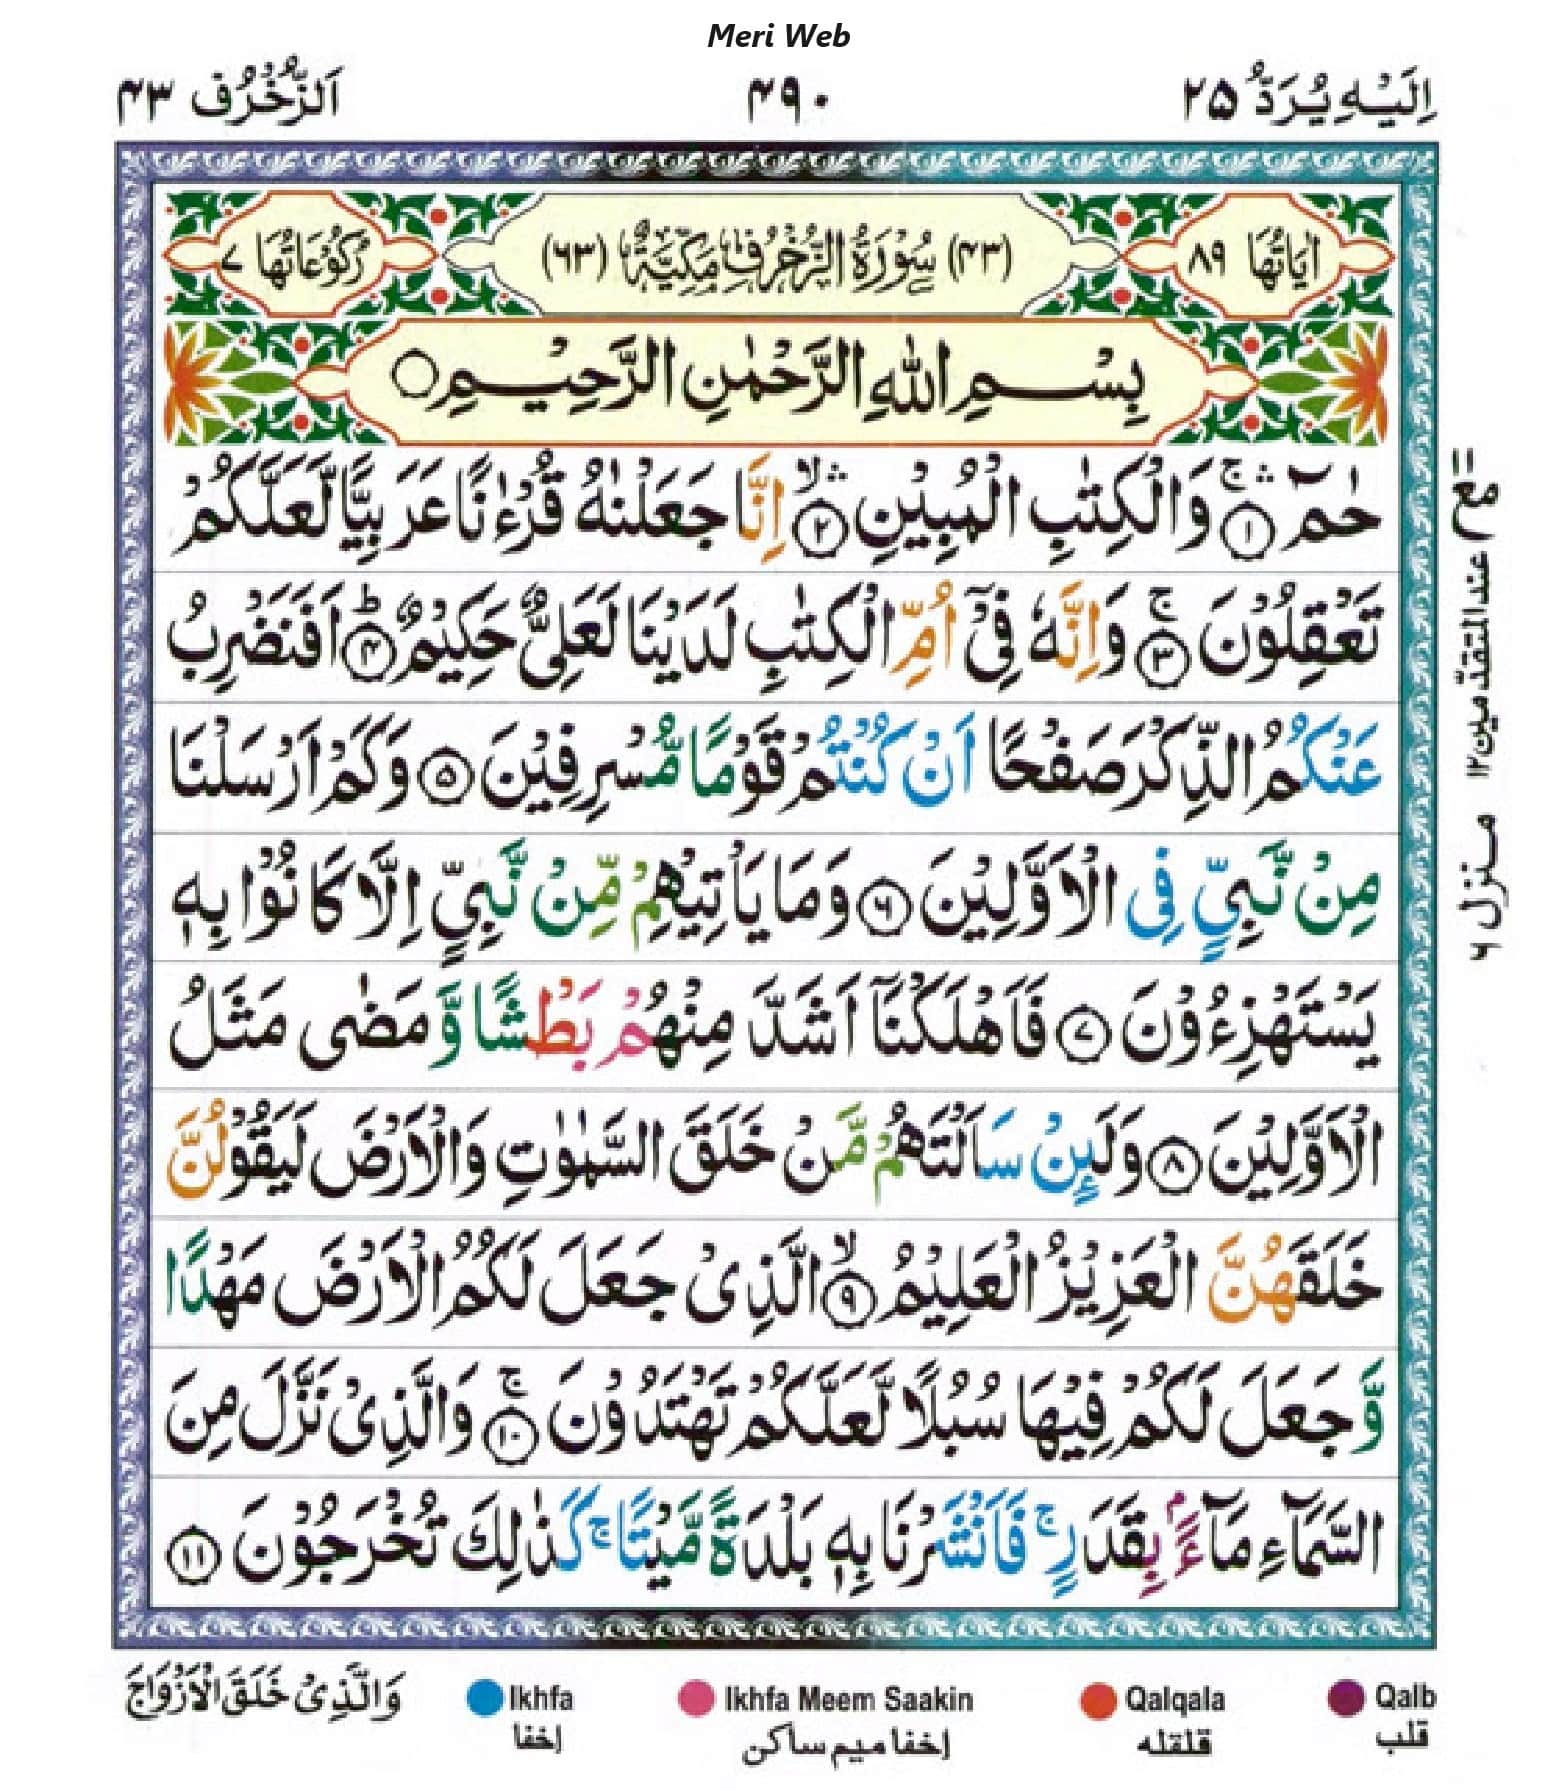 Meri Web
اِلَيْهِ يُرَدُّ ۲۵
۴۹۰
اَلزُّخْرُف ۴۳
اٰيَاتُهَا ۸۹
(۴۳) سُوْرَةُ الزُّخْرُفِ مَكِّيَّةٌ (۶۳)
رُكُوْعَاتُهَا ۷
بِسْمِ اللّٰهِ الرَّحْمٰنِ الرَّحِيْمِ ○
حٰمٓ ۛۚ ۝۱ وَالْكِتٰبِ الْمُبِيْنِ ۛۙ ۝۲ اِنَّا جَعَلْنٰهُ قُرْءٰنًا عَرَبِيًّا لَّعَلَّكُمْ
تَعْقِلُوْنَ ۚ ۝۳ وَاِنَّهٗ فِيْٓ اُمِّ الْكِتٰبِ لَدَيْنَا لَعَلِيٌّ حَكِيْمٌ ؕ ۝۴ اَفَنَضْرِبُ
عَنْكُمُ الذِّكْرَ صَفْحًا اَنْ كُنْتُمْ قَوْمًا مُّسْرِفِيْنَ ۝۵ وَكَمْ اَرْسَلْنَا
مِنْ نَّبِيٍّ فِى الْاَوَّلِيْنَ ۝۶ وَمَا يَاْتِيْهِمْ مِّنْ نَّبِيٍّ اِلَّا كَانُوْا بِهٖ
يَسْتَهْزِءُوْنَ ۝۷ فَاَهْلَكْنَآ اَشَدَّ مِنْهُمْ بَطْشًا وَّ مَضٰى مَثَلُ
الْاَوَّلِيْنَ ۝۸ وَلَىِٕنْ سَاَلْتَهُمْ مَّنْ خَلَقَ السَّمٰوٰتِ وَالْاَرْضَ لَيَقُوْلُنَّ
خَلَقَهُنَّ الْعَزِيْزُ الْعَلِيْمُ ۙ ۝۹ الَّذِىْ جَعَلَ لَكُمُ الْاَرْضَ مَهْدًا
وَّ جَعَلَ لَكُمْ فِيْهَا سُبُلًا لَّعَلَّكُمْ تَهْتَدُوْنَ ۚ ۝۱۰ وَالَّذِىْ نَزَّلَ مِنَ
السَّمَآءِ مَآءًۢ بِقَدَرٍ ۚ فَاَنْشَرْنَا بِهٖ بَلْدَةً مَّيْتًا ۚ كَذٰلِكَ تُخْرَجُوْنَ ۝۱۱
مع عند المتقدّمين ۱۲
منزل ۶
وَالَّذِىْ خَلَقَ الْاَزْوَاجَ
Ikhfa
إخفا
Ikhfa Meem Saakin
إخفا ميم ساكن
Qalqala
قلقله
Qalb
قلب